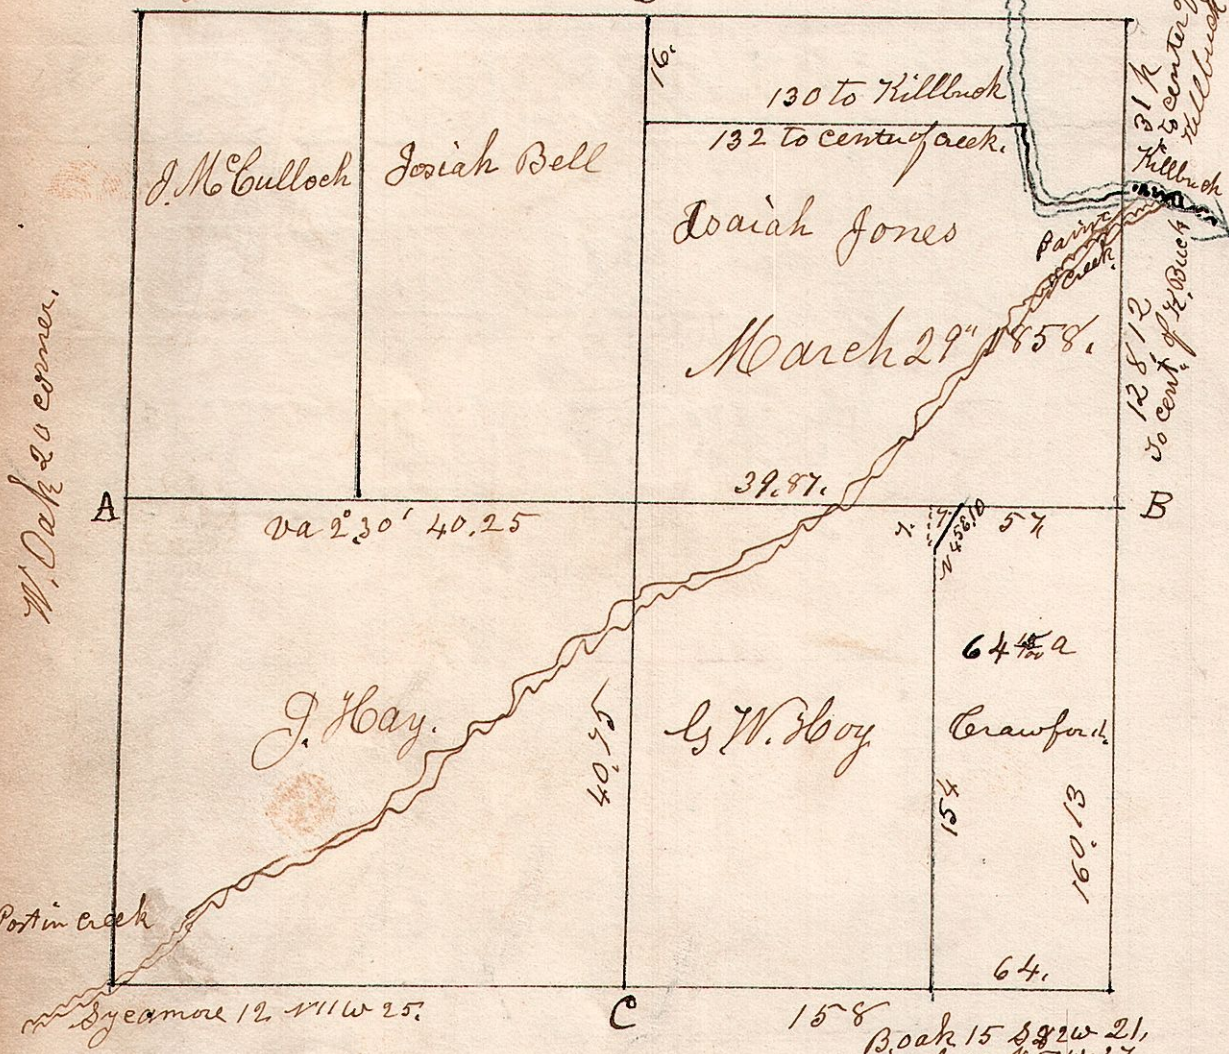 16.
130 to Killbuck
132 to center of creek.
31 K
to center of
Killbuck
Killbuck
J. McCulloch
Josiah Bell
Isaiah Jones
Paint
Creek.
March 29" 1858.
12 8/12
To cent. of K. Buck
W. Oak 20 corner.
A
39.87.
B
va 2°30' 40.25
7.
7.
N 45 E 10
57
64 a
J. Hay.
40.75
G. W. Hoy
Crawford.
154
160.13
Post in creek
64.
Sycamore 12 N 11 W 25.
C
158
B. oak 15 S 92 W 21,